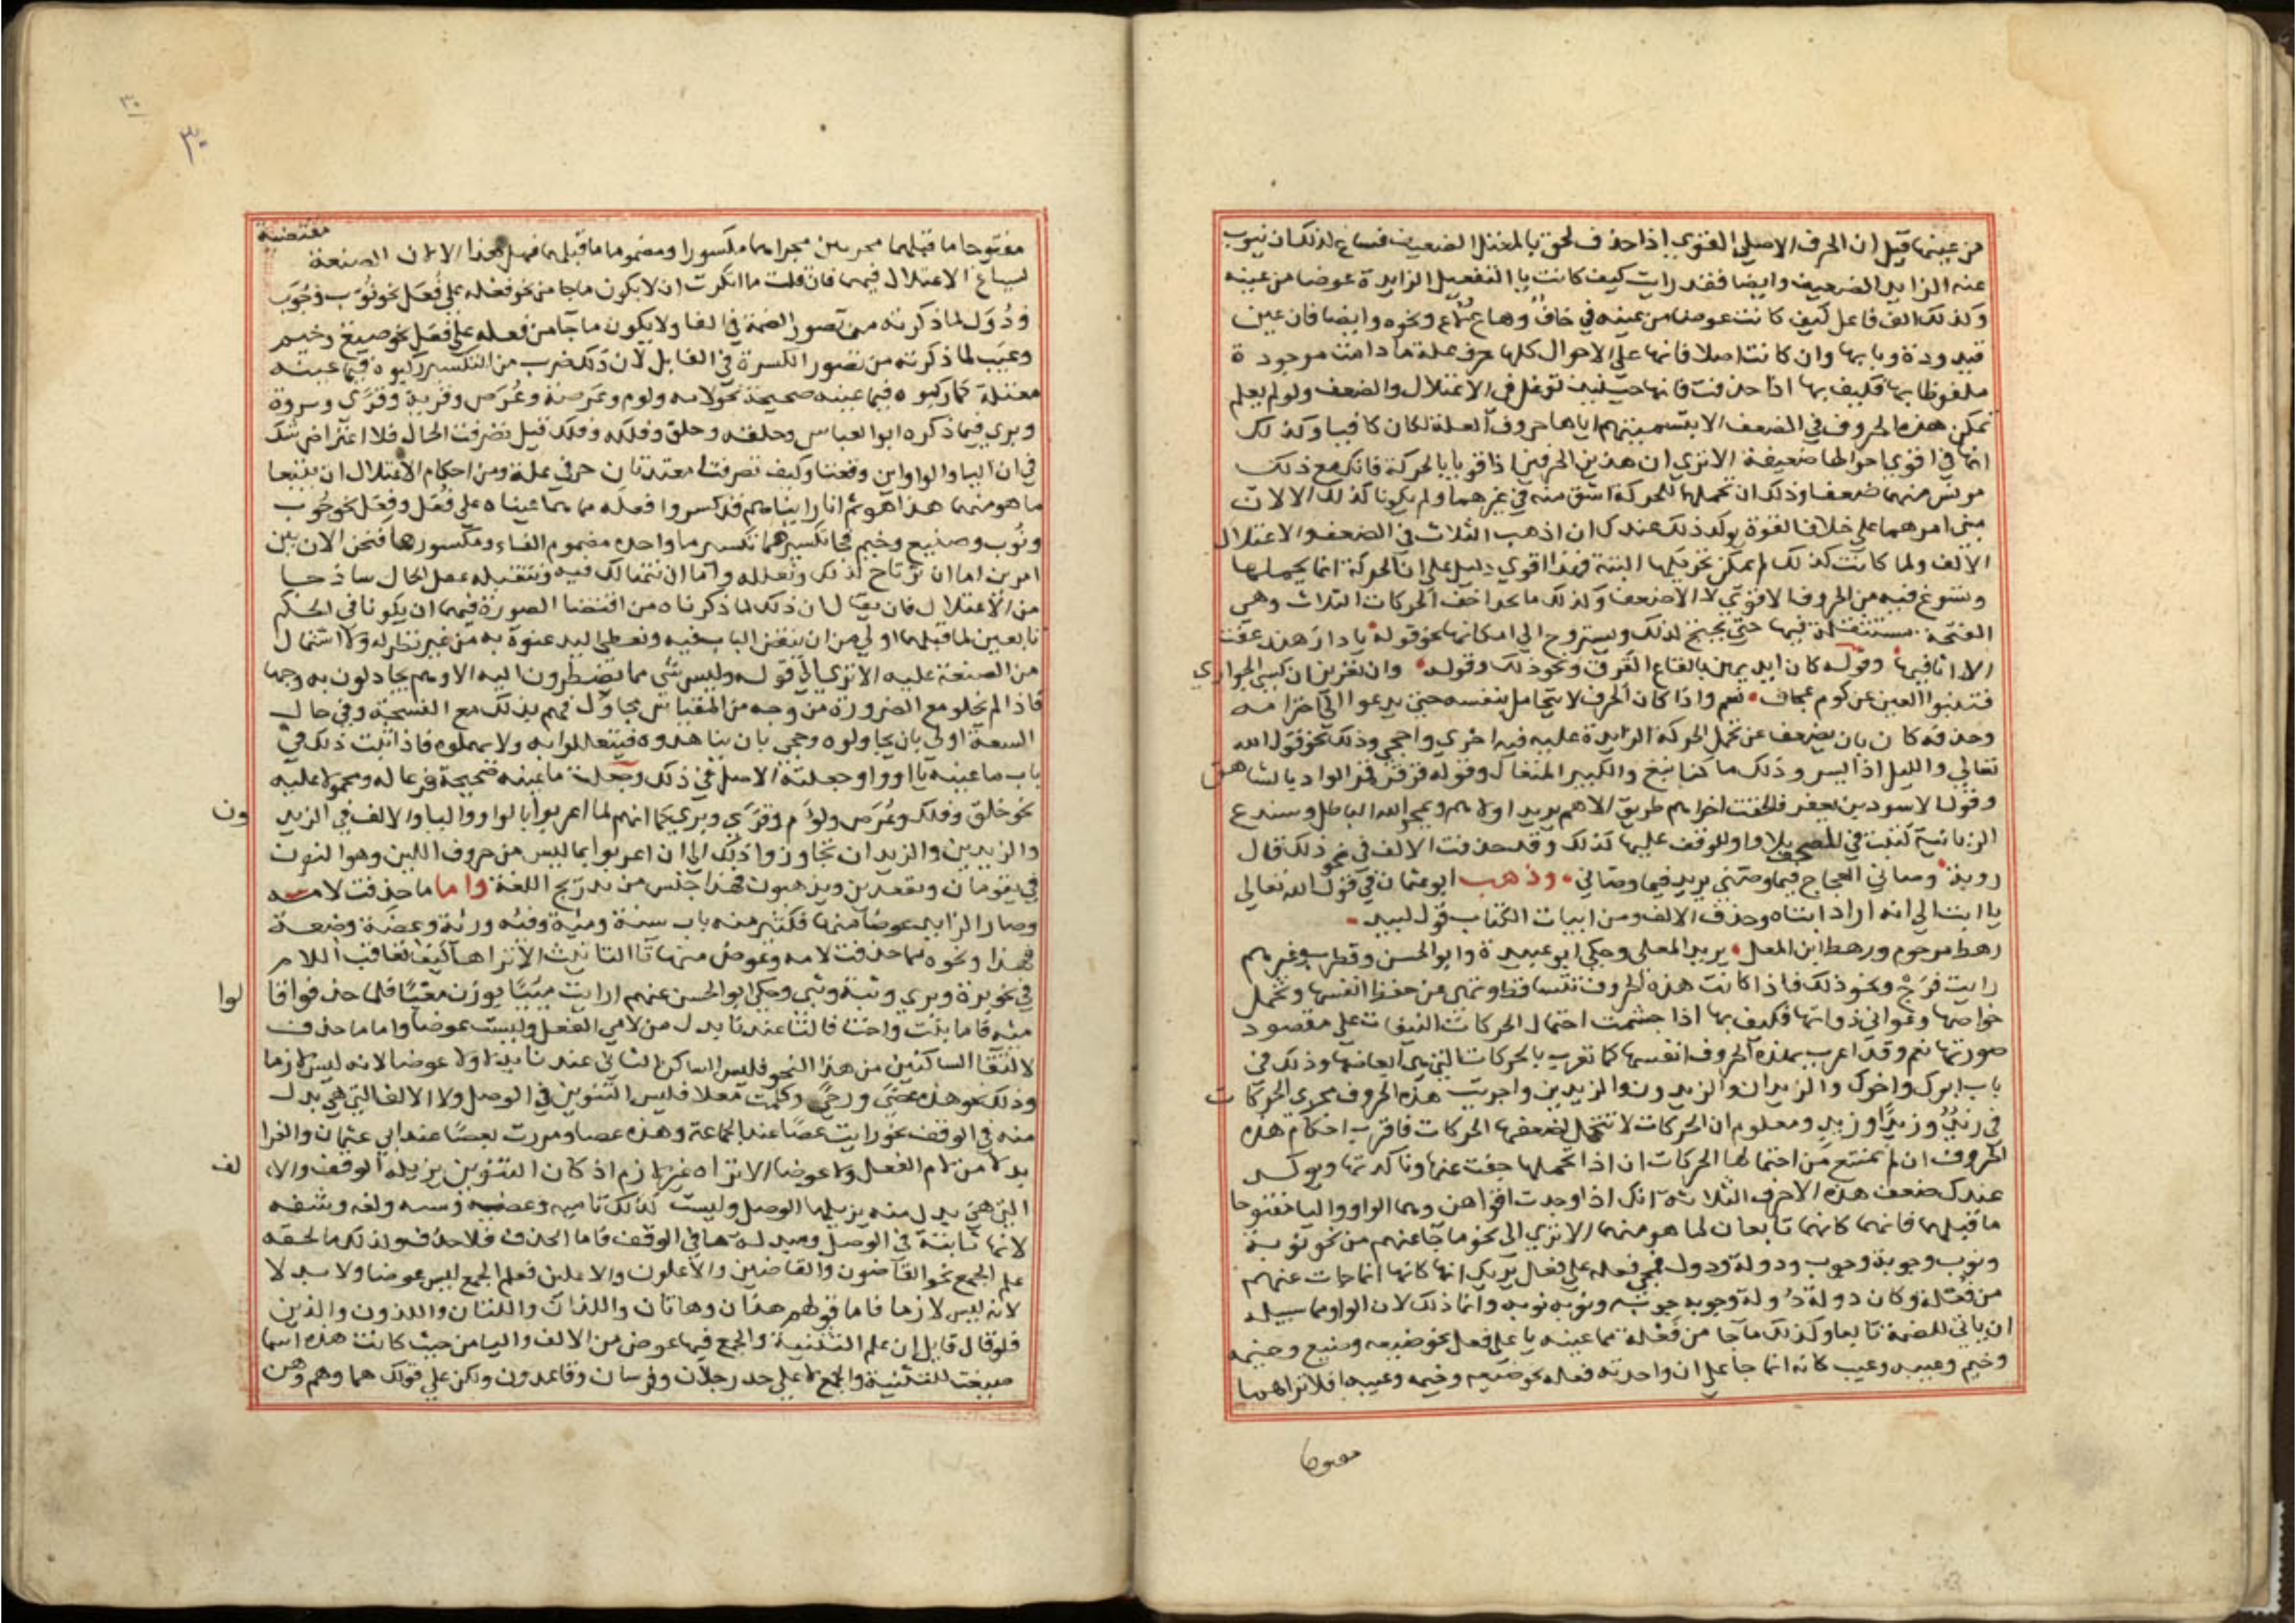 من عينها قيل ان الحرف الاصلي القوي اذا حذف لحق بالمعتل الضعيف فساغ لذلك ان ينوب
عنه الزايد الضعيف وايضا فقد رايت كيف كانت يا التفعيل الزايدة عوضا من عينه
وكذلك الف فاعل كيف كانت عوضا من عينه في خاف وهاع ونحوه وايضا فان عين
قيدودة وبابها وان كانت اصلا فانها على الاحوال كلها حرف علة ما دامت موجودة
ملفوظا بها فكيف بها اذا حذفت فانها حينئذ توغل في الاعتلال والضعف ولو لم يعلم
تمكن هذه الحروف في الضعف الا بتسميتهم اياها حروف العلة لكان كافيا وكذلك
انها في اقوى احوالها ضعيفة الا ترى ان هذين الحرفين اذا قويا بالحركة فانك مع ذلك
مونس منهما ضعفا وذلك ان تحملهما للحركة اشق منه في غيرهما ولم يكونا كذلك الا لان
مبنى امرهما على خلاف القوة يوكد ذلك عندك ان اذهب الثلاث في الضعف والاعتلال
الالف ولما كانت كذلك لم يمكن تحريكها البتة فهذا اقوى دليل على ان الحركة انما يحملها
ويسوغ فيه من الحروف الاقوى لا الاضعف وكذلك ما تجد اخف الحركات الثلاث وهي
الفتحة مستثقلة فيها حتى يجنح لذلك ويستروح الى اسكانها نحو قوله يا دار هند عفت
الا اثافيها وقوله كان ايديهن بالقاع القرق ونحو ذلك وقوله وان يعرين ان كسي الجواري
فتنبوا العين عن كوم عجاف نعم واذا كان الحرف لا يتحامل بنفسه حتى يدعوا الى اخترامه
وحذفه كان بان يضعف عن تحمل الحركة الزايدة عليه فيه احرى واحجى وذلك نحو قول الله
تعالى والليل اذا يسر وذلك ما كنا نبغ والكبير المتعال وقوله قرقر قمر الواد بالشاهق
وقول الاسود بن يعفر فالحقت اخراهم طريق الاهم يريد اولاهم ويمح الله الباطل وسندع
الزبانية كتبت في المصحف بلا واو للوقف عليها كذلك وقد حذفت الالف في نحو ذلك قال
روبة وصاني العجاج فيما وصني يريد فيما وصاني وذهب ابو عثمان في قول الله تعالى
يا ابت الى انه اراد ابتاه وحذف الالف ومن ابيات الكتاب قول لبيد
رهط مرجوم ورهط ابن المعل يريد المعلى وحكى ابو عبيدة وابو الحسن وقطرب وغيرهم
رايت فرج ونحو ذلك فاذا كانت هذه الحروف تتساقط وتهي من حفظ انفسها وتحمل
خواصها وعواني ذواتها فكيف بها اذا جشمت احتمال الحركات النيفات على مقصود
صورتها نعم وقد اعرب بهذه الحروف انفسها كما تعرب بالحركات التي هي ابعاضها وذلك في
باب ابوك واخوك والزيدان والزيدون والزيدين واجريت هذه الحروف مجرى الحركات
في زيد وزيدا وزيد ومعلوم ان الحركات لا تتحمل لضعفها الحركات فاقرب احكام هذه
الحروف ان لم تمتنع من احتمالها الحركات ان اذا تحملها جفت عنها وتاكدتها ويوكد
عندك ضعف هذه الاحرف الثلاثة انك اذا وجدت اقواهن وهما الواو واليا مفتوحا
ما قبلهما فانهما كانهما تابعان لما هو منهما الا ترى الى نحو ما جا عنهم من نحو نوبة
ونوب وجوبة وجوب ودولة ودول فمجي فعله على فعل يريك انها كانها انما جات عنهم
من فعلة وكان دولة دولة وجوبه جوبه ونوبه نوبه وانما ذلك لان الواو مما سبيله
ان ياتي للضمة تابعا وكذلك ما جا من فعلة مما عينه يا على فعل نحو ضيعه وضيع وخيمه
وخيم وعيبه وعيب كانه انما جا على ان واحدته فعله نحو ضيعه وخيمه وعيبه افلا تراهما
مفتوحا
٣٠
٣٠
مفتوحا ما قبلهما مجريين مجراهما مكسورا ومضموما ما قبلهما فهل هذا الا لان الصنعة مقتضية
لساغ الاعتلال فيهما فان قلت ما انكرت ان لا يكون ما جا من نحو فعله على فعل نحو نوب وجوب
ودول لما ذكرته من تصور الضمة في الفا ولا يكون ما جا من فعله على فعل نحو ضيع وخيم
وعيب لما ذكرته من تصور الكسرة في الفا بل لان ذلك ضرب من التكسير ركبوه فيما عينه
معتلة كما ركبوه فيما عينه صحيحة نحو لامه ولوم وعرصة وعرص وقرية وقرى وسروة
وبرى فيما ذكره ابو العباس وحلقه وحلق وفلكه وفلك قيل تصرفت الحال فلا اعتراض شك
في ان اليا والواو اين وقعتا وكيف تصرفتا معتدتان حرفي علة ومن احكام الاعتلال ان يتبعا
ما هو منهما هذا هو ثم انا رايناهم قد كسروا فعله مما هما عيناه على فعل وفعل نحو جوب
ونوب وضيع وخيم فجا تكسيرهما تكسير ما واحده مضموم الفاء ومكسورها فنحن الان بين
امرين اما ان نرتاح لذلك ونعلله واما ان نتهالك فيه ونتقبله غفل الحال ساذجا
من الاعتلال فان يقال ان ذلك لما ذكرناه من اقتضا الصورة فيهما ان يكونا في الحكم
تابعين لما قبلهما اولى من ان ينقض الباب فيه ونعطي اليد عنوة به من غير نظر له ولا اشتمال
من الصنعة عليه الا ترى الى قوله وليس شي مما يضطرون اليه الا وهم يحاولون به وجها
فاذا لم يخلو مع الضرورة من وجه من القياس محاول فهم بذلك مع الفسحة وفي حال
السعة اولى بان يحاولوه وحجى بان يناهدوه فيتعللوا به ولا يهملوه فاذا ثبت ذلك في
باب ما عينه يا او واو جعلته الاصل في ذلك وجعلت ما عينه صحيحة فرعا له ومحمولا عليه
نحو حلق وفلك وعرص ولوم وقرى وبرى كما انهم لما اعربوا بالواو واليا والالف في الزيدون
والزيدين والزيدان تجاوزوا ذلك الى ان اعربوا بما ليس من حروف اللين وهو النون
في يقومان وتقعدين ويذهبون فهذا جنس من تدريج اللغة واما ما حذفت لامه
وصار الزايد عوضا منها فكثير منه باب سنة ومية وفئه ورئة وعضة وضعة
فهذا ونحوه مما حذفت لامه وعوض منها تا التانيث الا تراها كيف تعاقب اللام
في نحو برة وبرى وثبة وثبى وحكى ابو الحسن عنهم رايت مئيا بوزن معيا فلما حذفوا قالوا
مئه فاما بنت واخت فالتا عندنا بدل من لامي الفعل وليست عوضا واما ما حذف
لالتقا الساكنين من هذا النحو فليس الساكن الثاني عندنا بدلا ولا عوضا لانه ليس لازما
وذلك نحو هذه عصى ورحى وكلمت معلا فليس التنوين في الوصل ولا الالف التي هي بدل
منه في الوقف نحو رايت عصا عند الجماعة وهذه عصا ومررت بعصا عند ابي عثمان والفرا
بدلا من لام الفعل ولا عوضا الا تراه غير لازم اذ كان التنوين يزيله الوقف والالف
التي هي بدل منه يزيلها الوصل وليست كذلك تا ميه وعضه وسنه ولغه وشفه
لانها ثابتة في الوصل ومبدلة ها في الوقف فاما الحذف فلا حذف وكذلك ما لحقه
علم الجمع نحو القاضون والقاضين والاعلون والاعلين فعلم الجمع ليس عوضا ولا بدلا
لانه ليس لازما فاما قولهم هذان وهاتان واللذان واللتان واللذون والذين
فلو قال قايل ان علم التثنية والجمع فيها عوض من الالف واليا من حيث كانت هذه اسما
صيغت للتثنية والجمع لا على حد رجلان وفرسان وقاعدون ولكن على قولك هما وهم وهن